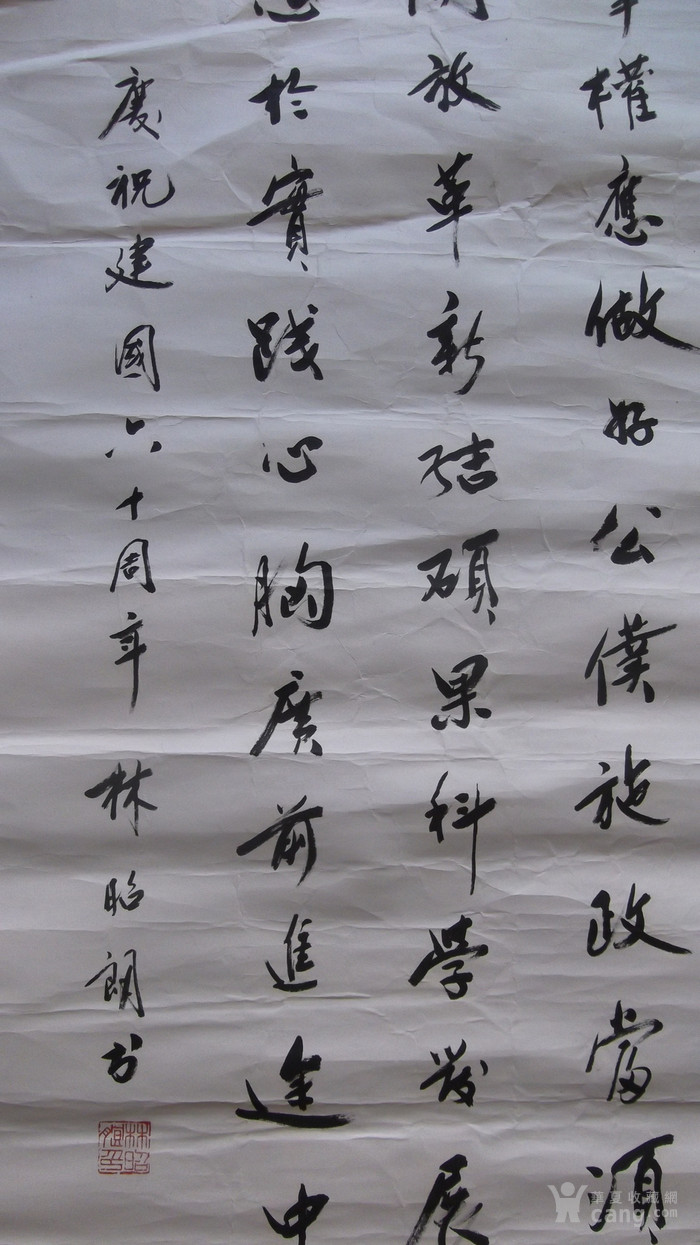 權應做好公僕施政當須
放革新結碩果科學發展
於實踐心胸廣前進途中
慶祝建國六十周年 林昭朗书
華夏收藏網
cang.com